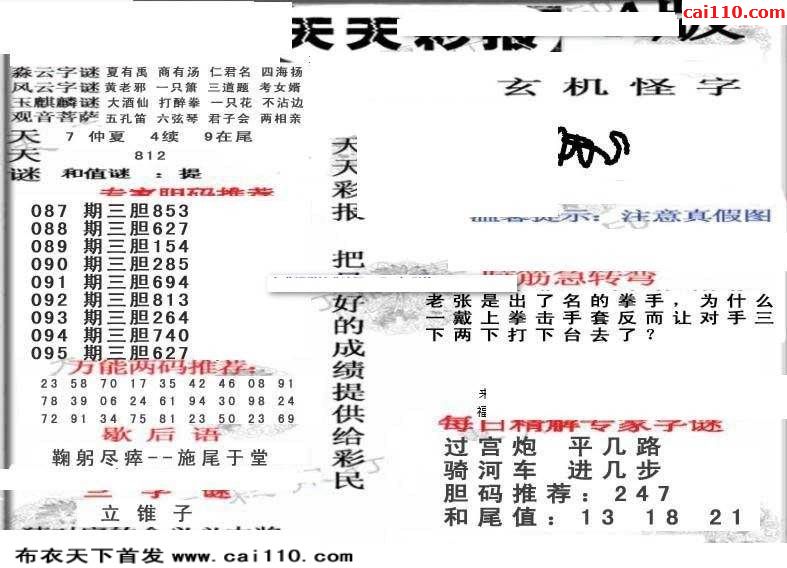 cai110.com
天天彩报
版
淼云字谜 夏有禹 商有汤 仁君名 四海扬
风云字谜 黄老邪 一只箫 三道题 考女婿
玉麒麟谜 大酒仙 打醉拳 一只花 不沾边
观音菩萨 五孔笛 六弦琴 君子会 两相亲
天 7 仲夏 4续 9在尾
天 812
谜 和值谜 :提
专家胆码推荐
087 期三胆853
088 期三胆627
089 期三胆154
090 期三胆285
091 期三胆694
092 期三胆813
093 期三胆264
094 期三胆740
095 期三胆627
万能两码推荐:
23 58 70 17 35 42 46 08 91
78 39 06 24 61 94 30 98 24
72 91 34 75 81 23 50 23 69
歇后语
鞠躬尽瘁--施尾于堂
三字谜
立锥子
天天彩报 把最好的成绩提供给彩民
玄机怪字
温馨提示:注意真假图
脑筋急转弯
老张是出了名的拳手，为什么
一戴上拳击手套反而让对手三
下两下打下台去了？
每日精解专家字谜
过宫炮 平几路
骑河车 进几步
胆码推荐:247
和尾值:13 18 21
布衣天下首发 www.cai110.com